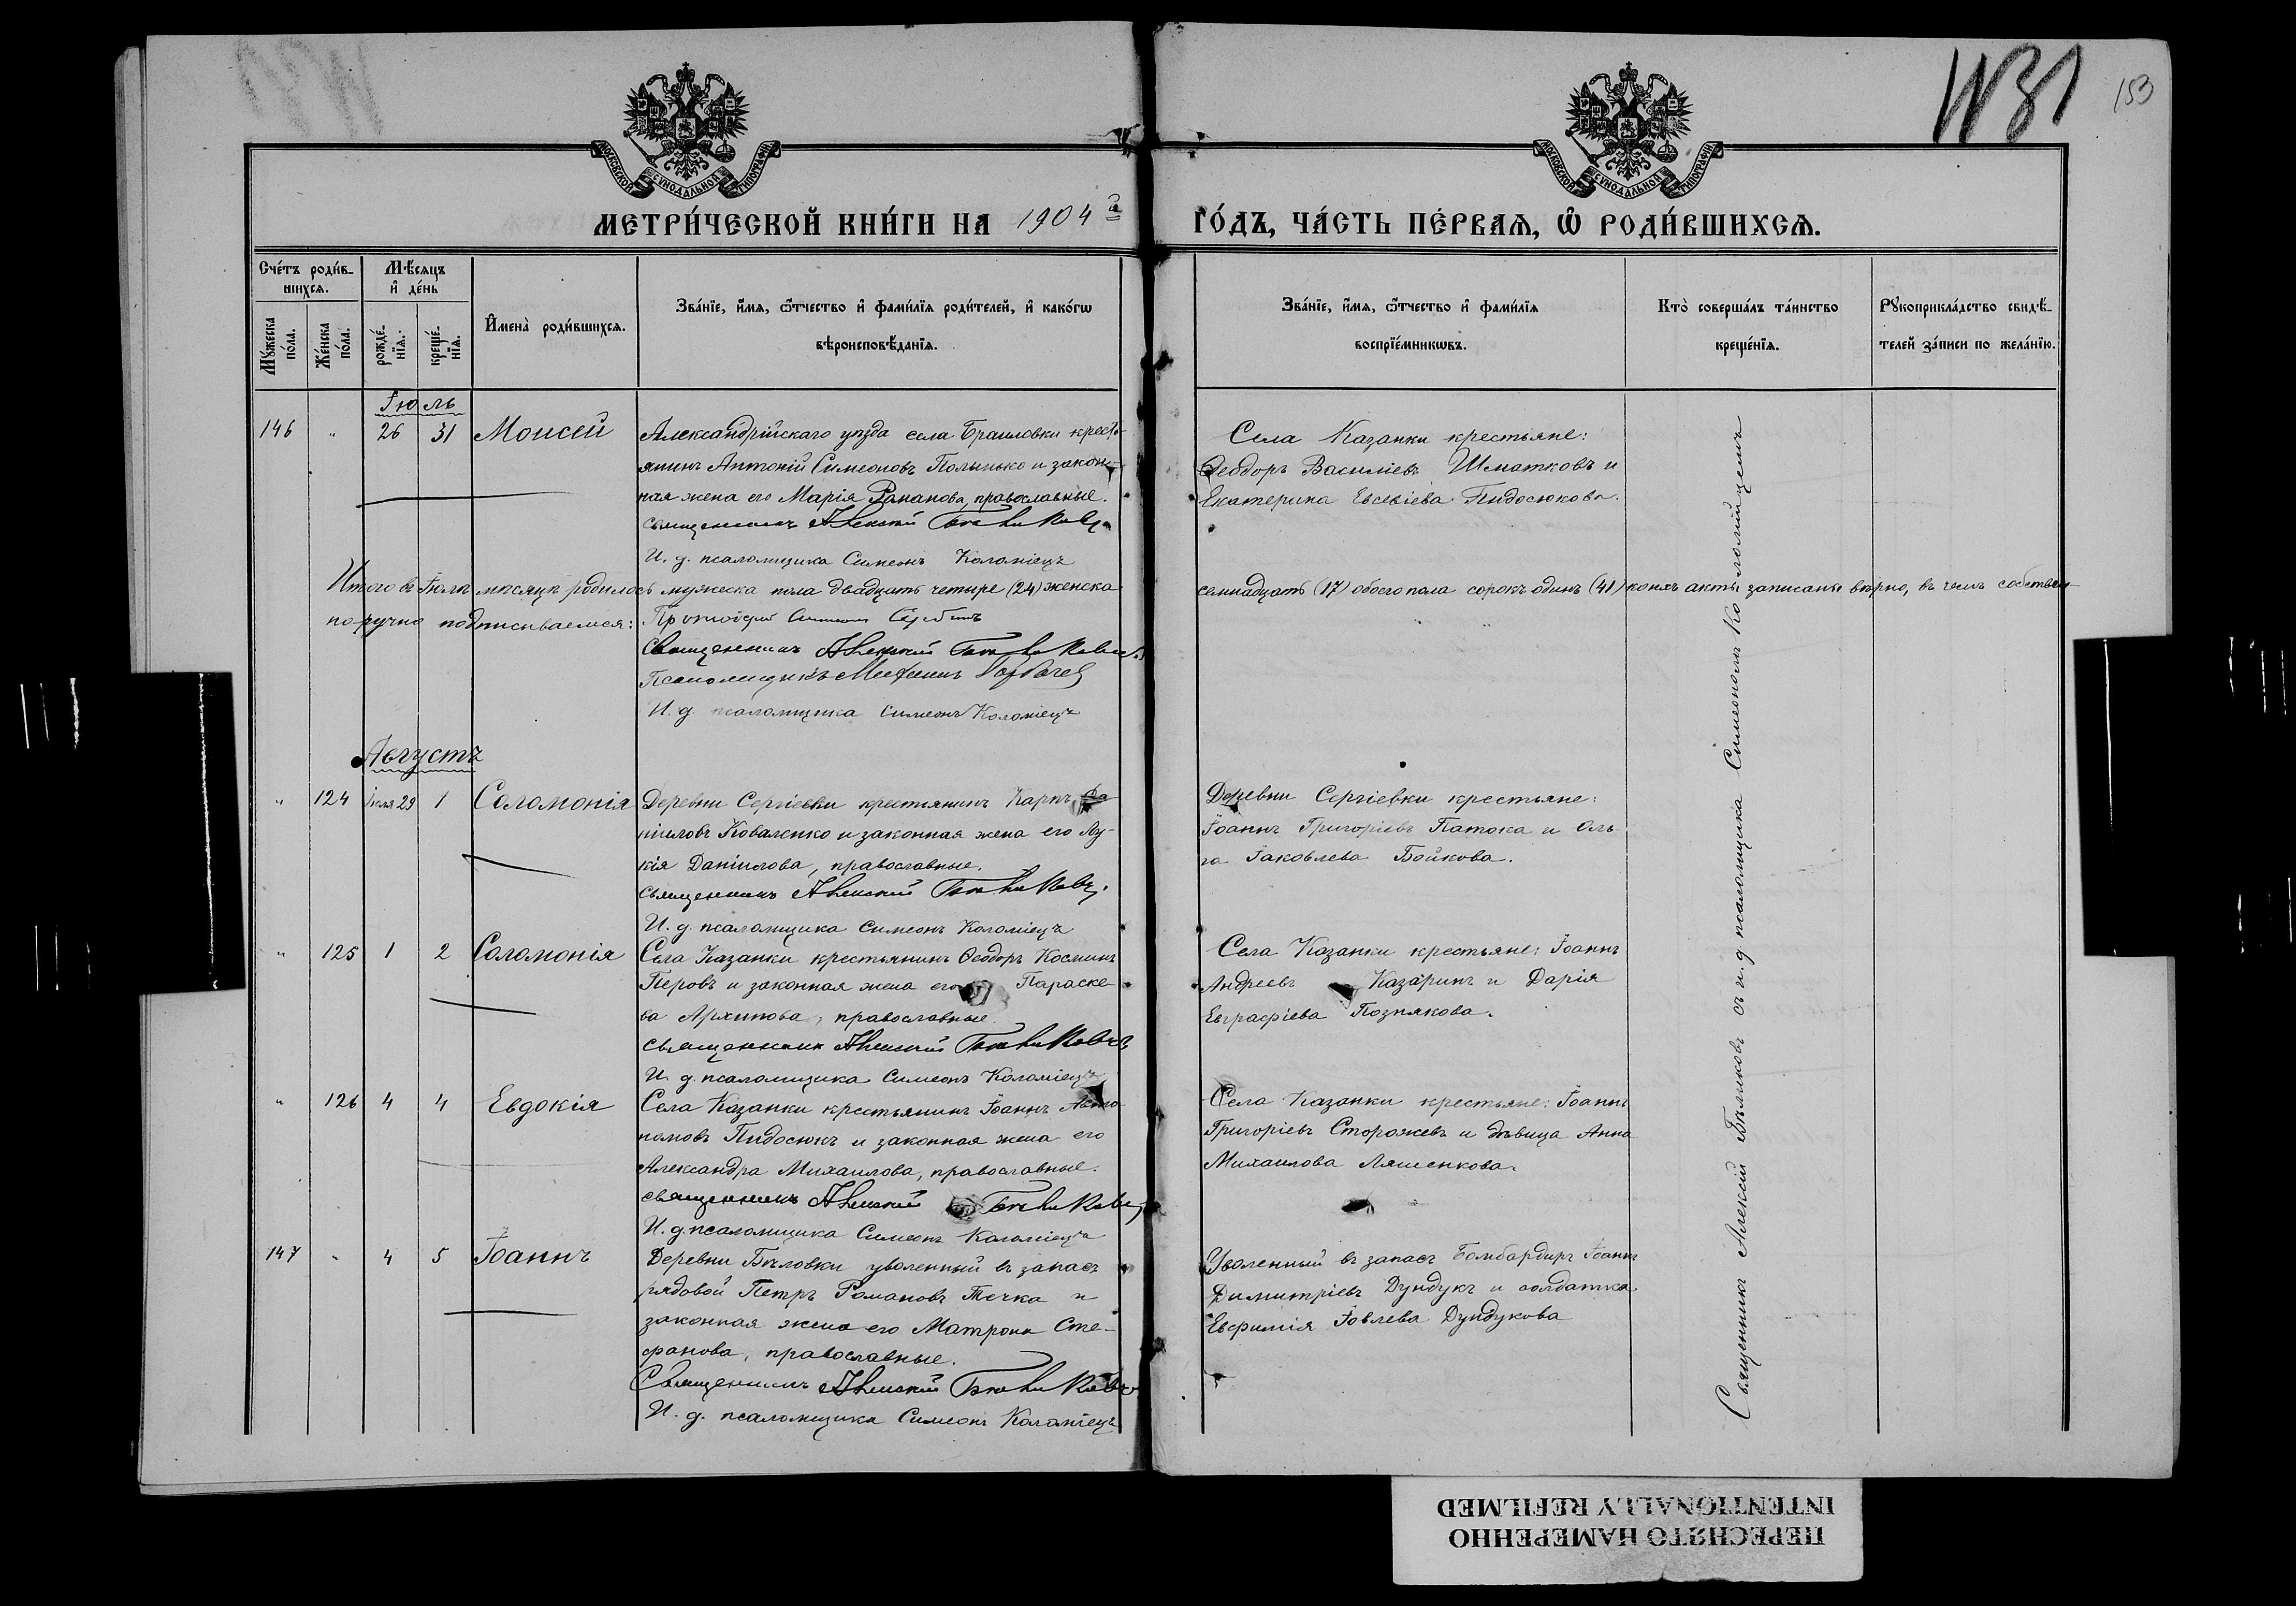 N31
153
МОСКОВСКОЙ СѴНОДАЛЬНОЙ ТИПОГРАФІИ
МОСКОВСКОЙ СѴНОДАЛЬНОЙ ТИПОГРАФІИ
МЕТРИ́ЧЕСКОЙ КНИ́ГИ НА 1904й ГО́ДЪ, ЧА́СТЬ ПЕ́РВАѦ, Ѽ РОДИ́ВШИХСѦ.
Сче́тъ роди́в-
шихсѧ.
Мѣ́сѧцъ
и҆ де́нь
Мꙋ́жеска
по́ла.
Же́нска
по́ла.
рожде́-
нїѧ.
креще́-
нїѧ.
И҆мена̀ роди́вшихсѧ.
Зва́нїе, и҆́мѧ, ѻ҆́тчество и҆ фами́лїѧ роди́телей, и҆ како́гѡ
вѣроисповѣ́данїѧ.
Зва́нїе, и҆́мѧ, ѻ҆́тчество и҆ фами́лїѧ
воспрїе́мникѡвъ.
Кто̀ соверша́лъ та́инство
креще́нїѧ.
Рꙋкоприкла́дство свидѣ́-
телей за́писи по жела́нїю.
Іюль
146 " 26 31 Моисей
Александрійскаго уѣзда села Браиловки кресть-
янинъ Антоній Симеоновъ Полынько и закон-
ная жена его Марія Романова, православные.
Священникъ Алексій Бѣликовъ
И. д. псаломщика Симеонъ Коломіецъ
Села Казанки крестьяне:
Ѳеодоръ Василіевъ Шматковъ и
Екатерина Евсевіева Пидосюкова.
Итого въ Іюлѣ мѣсяцѣ родилось мужеска пола двадцать четыре (24) женска
семнадцать (17) обоего пола сорокъ одинъ (41) коихъ акты записаны вѣрно, въ чемъ собствен-
но-ручно подписываемся: Протоіерей Симеонъ
Священникъ Алексій Бѣликовъ
Псаломщикъ
И. д. псаломщика Симеонъ Коломіецъ
Августъ
" 124 Іюля 29 1 Соломонія
Деревни Сергіевки крестьянинъ Карпъ Да-
ніиловъ Коваленко и законная жена его Лу-
кія Даніилова, православные.
Священникъ Алексій Бѣликовъ
И. д. псаломщика Симеонъ Коломіецъ
Деревни Сергіевки крестьяне:
Іоаннъ Григоріевъ Патока и Оль-
га Іаковлева Бойкова.
" 125 1 2 Соломонія
Села Казанки крестьянинъ Ѳеодоръ Косминъ
Перовъ и законная жена его Параске-
ва Архипова, православные.
Священникъ Алексій Бѣликовъ
И. д. псаломщика Симеонъ Коломіецъ
Села Казанки крестьяне: Іоаннъ
Андреевъ Казаринъ и Дарія
Евграфіева Познякова.
" 126 4 4 Евдокія
Села Казанки крестьянинъ Іоаннъ Авто-
номовъ Пидосюкъ и законная жена его
Александра Михаилова, православные.
Священникъ Алексій Бѣликовъ
И. д. псаломщика Симеонъ Коломіецъ
Села Казанки крестьяне: Іоаннъ
Григоріевъ Сторожевъ и дѣвица Анна
Михаилова Ляшенкова.
147 " 4 5 Іоаннъ
Деревни Бѣловки уволенный въ запасъ
рядовой Петръ Романовъ Течка и
законная жена его Матрона Сте-
фанова, православные.
Священникъ Алексій Бѣликовъ
И. д. псаломщика Симеонъ Коломіецъ
Уволенный въ запасъ Бомбардиръ Іоаннъ
Димитріевъ Дундукъ и солдатка
Евфимія Іовлева Дундукова
Священникъ Алексій Бѣликовъ съ и. д. псаломщика Симеономъ Коломійцемъ
ПЕРЕСНЯТО НАМЕРЕННО
INTENTIONALLY REFILMED